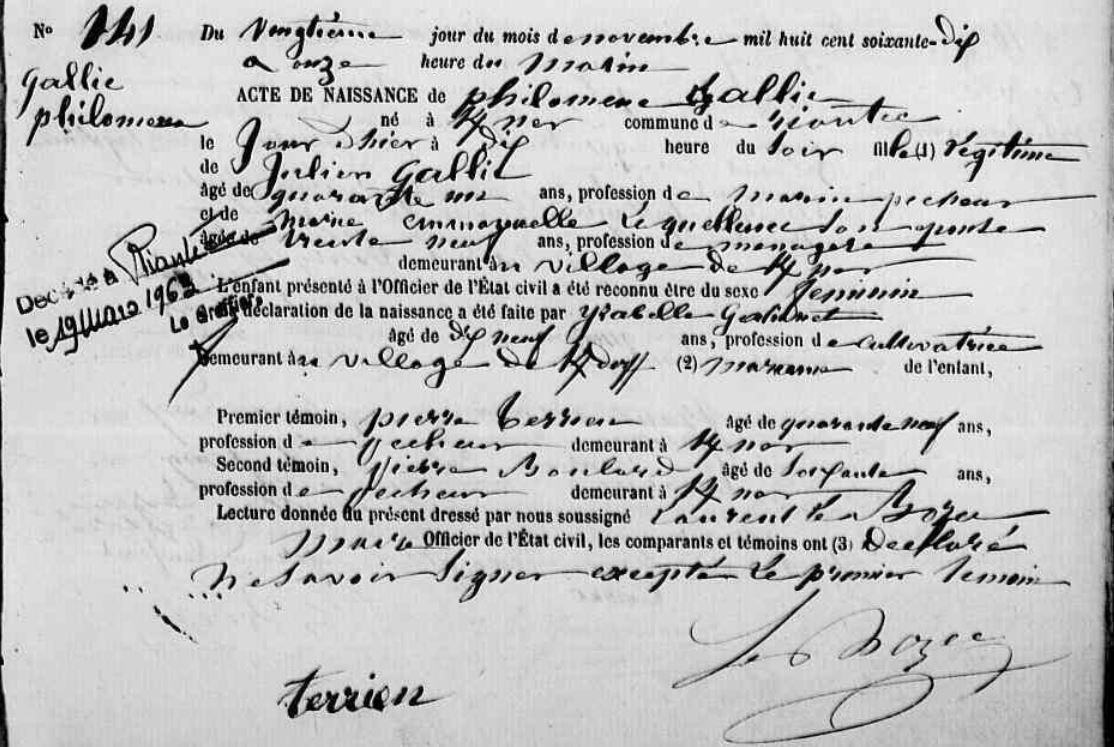 No 141 Du Vingtième jour du mois de novembre mil huit cent soixante-dix
a onze heure du Matin
Gallic
philomene
ACTE DE NAISSANCE de philomene Gallic
né à commune de Riantec
le Jour d'hier à dix heure du Soir fille (1) légitime
de Julien Gallic
âgé de quarante un ans, profession de marin pecheur
et de Marie emmanuelle Lequellenec Son epouse
âgée de trente neuf ans, profession de menagere
demeurant au village de
Décédé à Riantec
le 19 Mars 1963
Le Greffier,
L'enfant présenté à l'Officier de l'État civil a été reconnu être du sexe feminin
La déclaration de la naissance a été faite par Ysabelle
âgé de dix neuf ans, profession de cultivatrice
Demeurant au village de (2) marraine de l'enfant,
Premier témoin, pierre terrien âgé de quarante neuf ans,
profession de pecheur demeurant à
Second témoin, pierre âgé de Soixante ans,
profession de pecheur demeurant à
Lecture donnée du présent dressé par nous soussigné Laurent Le Bozec
Maire Officier de l'État civil, les comparants et témoins ont (3) Declaré
Ne Savoir Signer excepté Le premier temoin
Le Bozec
terrien